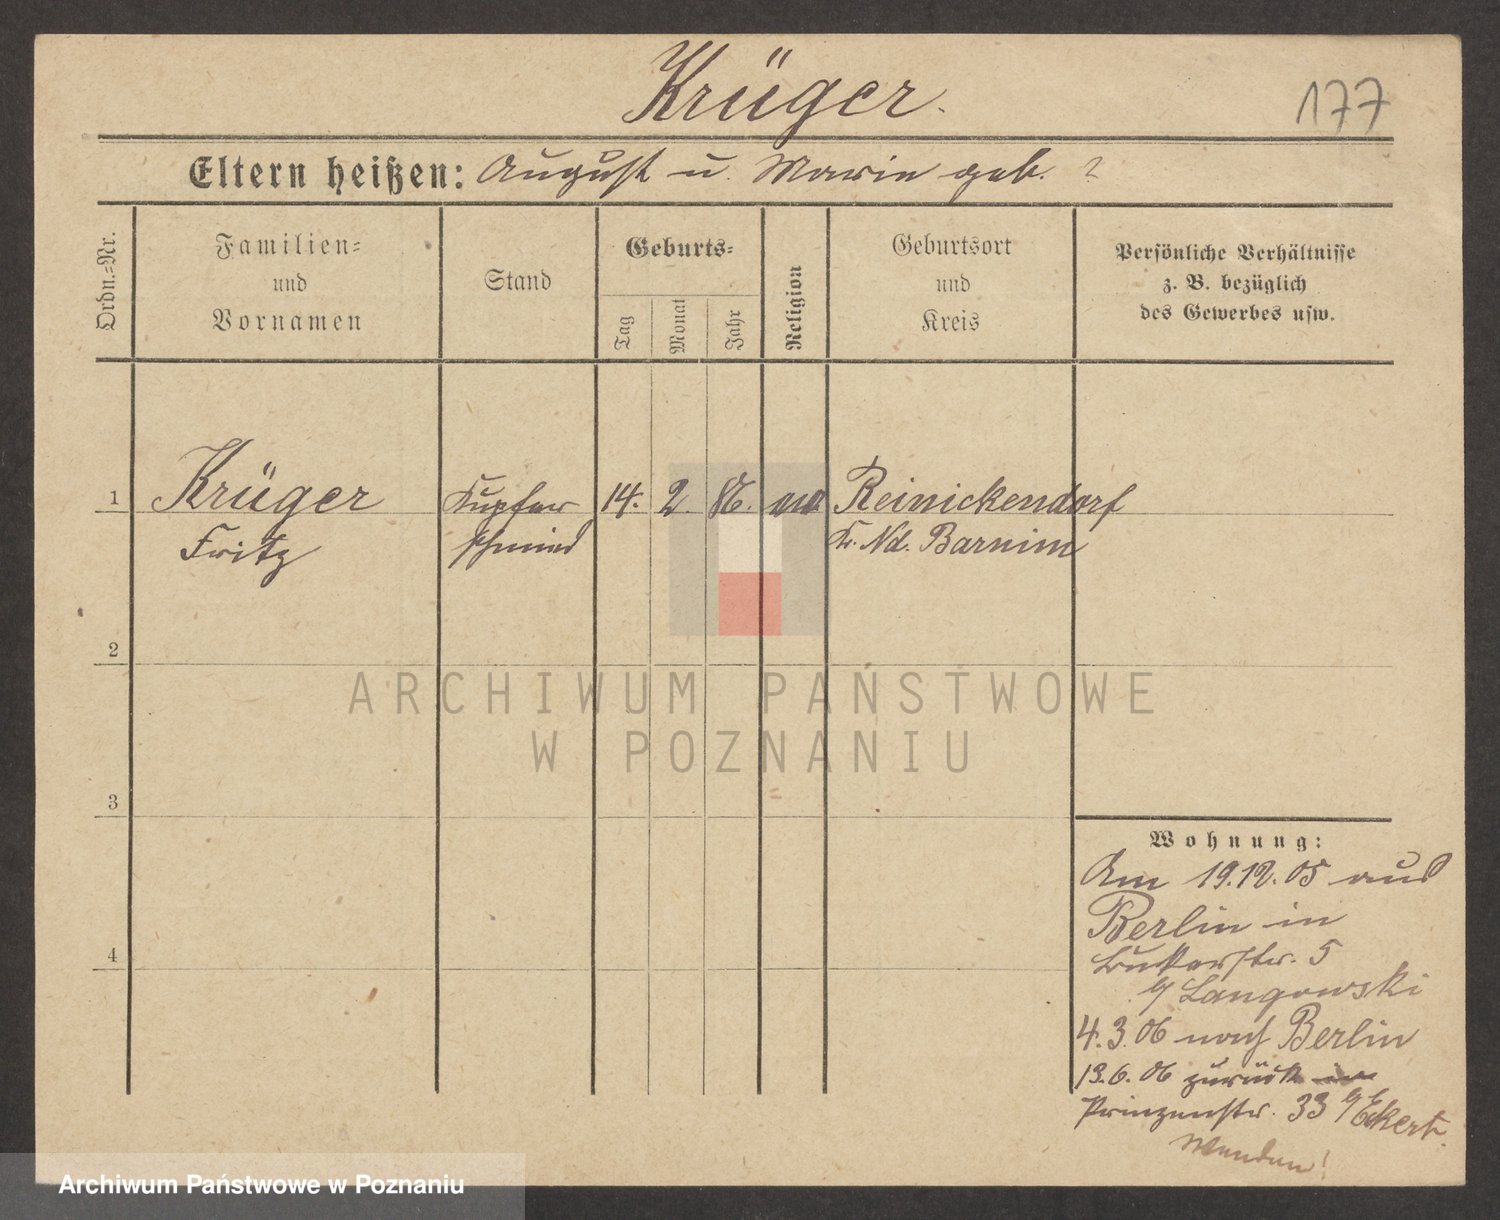 Krüger.
177
Eltern heißen: August u. Marie geb. ?
Ordn.=Nr.
Familien=
und
Vornamen
Stand
Geburts=
Tag
Monat
Jahr
Religion
Geburtsort
und
Kreis
Persönliche Verhältnisse
z. B. bezüglich
des Gewerbes usw.
1 Krüger Kupfer 14. 2. 86. ev. Reinickendorf
Fritz schmied Kr. Nd. Barnim
2
3
4
Wohnung:
Am 19.12.05 aus
Berlin in
5
b/ Langowski
4.3.06 nach Berlin
13.6.06 zurück in
Prinzenstr. 33 b/ Eckert.
Wenden!
ARCHIWUM PAŃSTWOWE
W POZNANIU
Archiwum Państwowe w Poznaniu